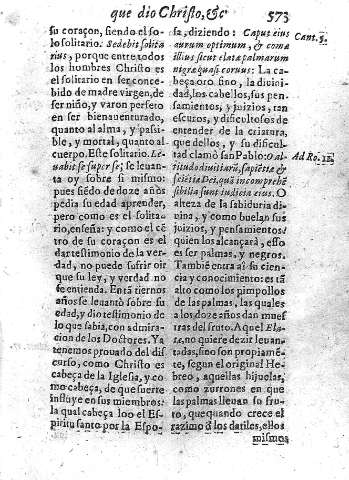 que dio Christo, &c
573
su coraçon, siendo el so-
lo solitario. Sedebit solita
rius, porque entre todos
los hombres Christo es
el solitario en ser conce-
bido de madre virgen, de
ser niño, y varon perfeto
en ser bienauenturado,
quanto al alma, y passi-
ble, y mortal, quanto al
cuerpo. Este solitario. Le-
uabit se super se; se leuan-
ta oy sobre si mismo:
pues siẽdo de doze años
pedia su edad aprender,
pero como es el solita-
rio, enseña: y como el cẽ
tro de su coraçon es el
dar testimonio de la ver-
dad, no puede sufrir oir
que su ley, y verdad no
se entienda. En tã tiernos
años se leuantò sobre su
edad, y dio testimonio de
lo que sabia, con admira-
cion de los Doctores. Ya
tenemos prouado del dis-
curso, como Christo es
cabeça de la Iglesia, y co-
mo cabeça, de que suerte
influye en sus miembros:
la qual cabeça loo el Es-
piritu santo por la Espo-
sa, diziendo: Caput eius
aurum optimum, & comæ
illius sicut elatæ palmarum
nigræ quasi coruus: La ca-
beça oro fino, la diuini-
dad, los cabellos, sus pen-
samientos, y juizios, tan
escuros, y dificultosos de
entender de la criatura,
que dellos, y su dificul-
tad clamò san Pablo: O al-
titudo diuitiarũ, sapiẽtiæ &
sciẽtiæ Dei, quã incomprehẽ
sibilia sunt iudicia eius. O
alteza de la sabiduria di-
uina, y como buelan sus
juizios, y pensamientos!
quien los alcançará, esso
es ser palmas, y negros.
Tambiẽ entra aì su ciẽn-
cia y conocimiento: es tã
alto como los pimpollos
de las palmas, las quales
a los doze años dan mues
tras del fruto. Aquel Ela-
tæ, no quiere dezir leuan-
tadas, sino son propiamẽ-
te, segun el original He-
breo, aquellas hijuelas,
como zurrones en que
las palmas lleuan su fru-
to, que quando crece el
razimo ò los datiles, ellos
mismos
Cant. 5.
Ad Ro. 12.